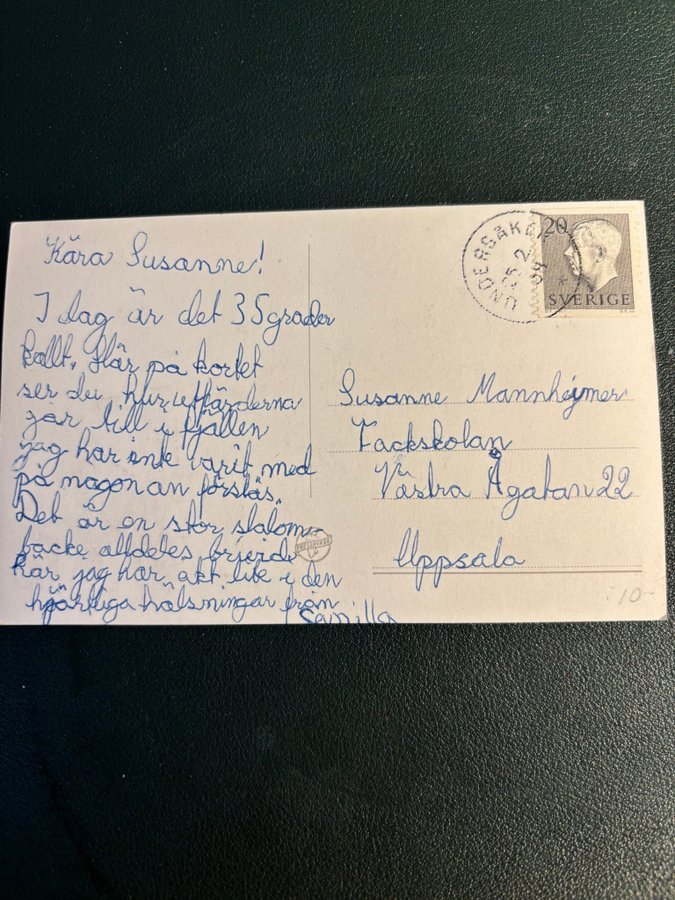 Kära Susanne!
I dag är det 35 grader
kallt. Här på kortet
ser du hur utfärderna
går till i fjällen
jag har inte varit med
på någon än förstås.
Det är en stor slalom-
backe alldeles bredvid
här jag har åkt lite i den
hjärtliga hälsningar från
Camilla
UNDERSÅKER
25.2
20
SVERIGE
Susanne Mannheimer
Fackskolan
Västra Ågatan 22
Uppsala
10-